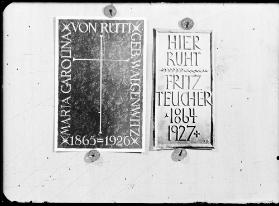 MARIA CAROLINA
VON RÜTTI
GEB WALGENWITZ
1865=1926
HIER
RUHT
FRITZ
TEUCHER
1864
1927